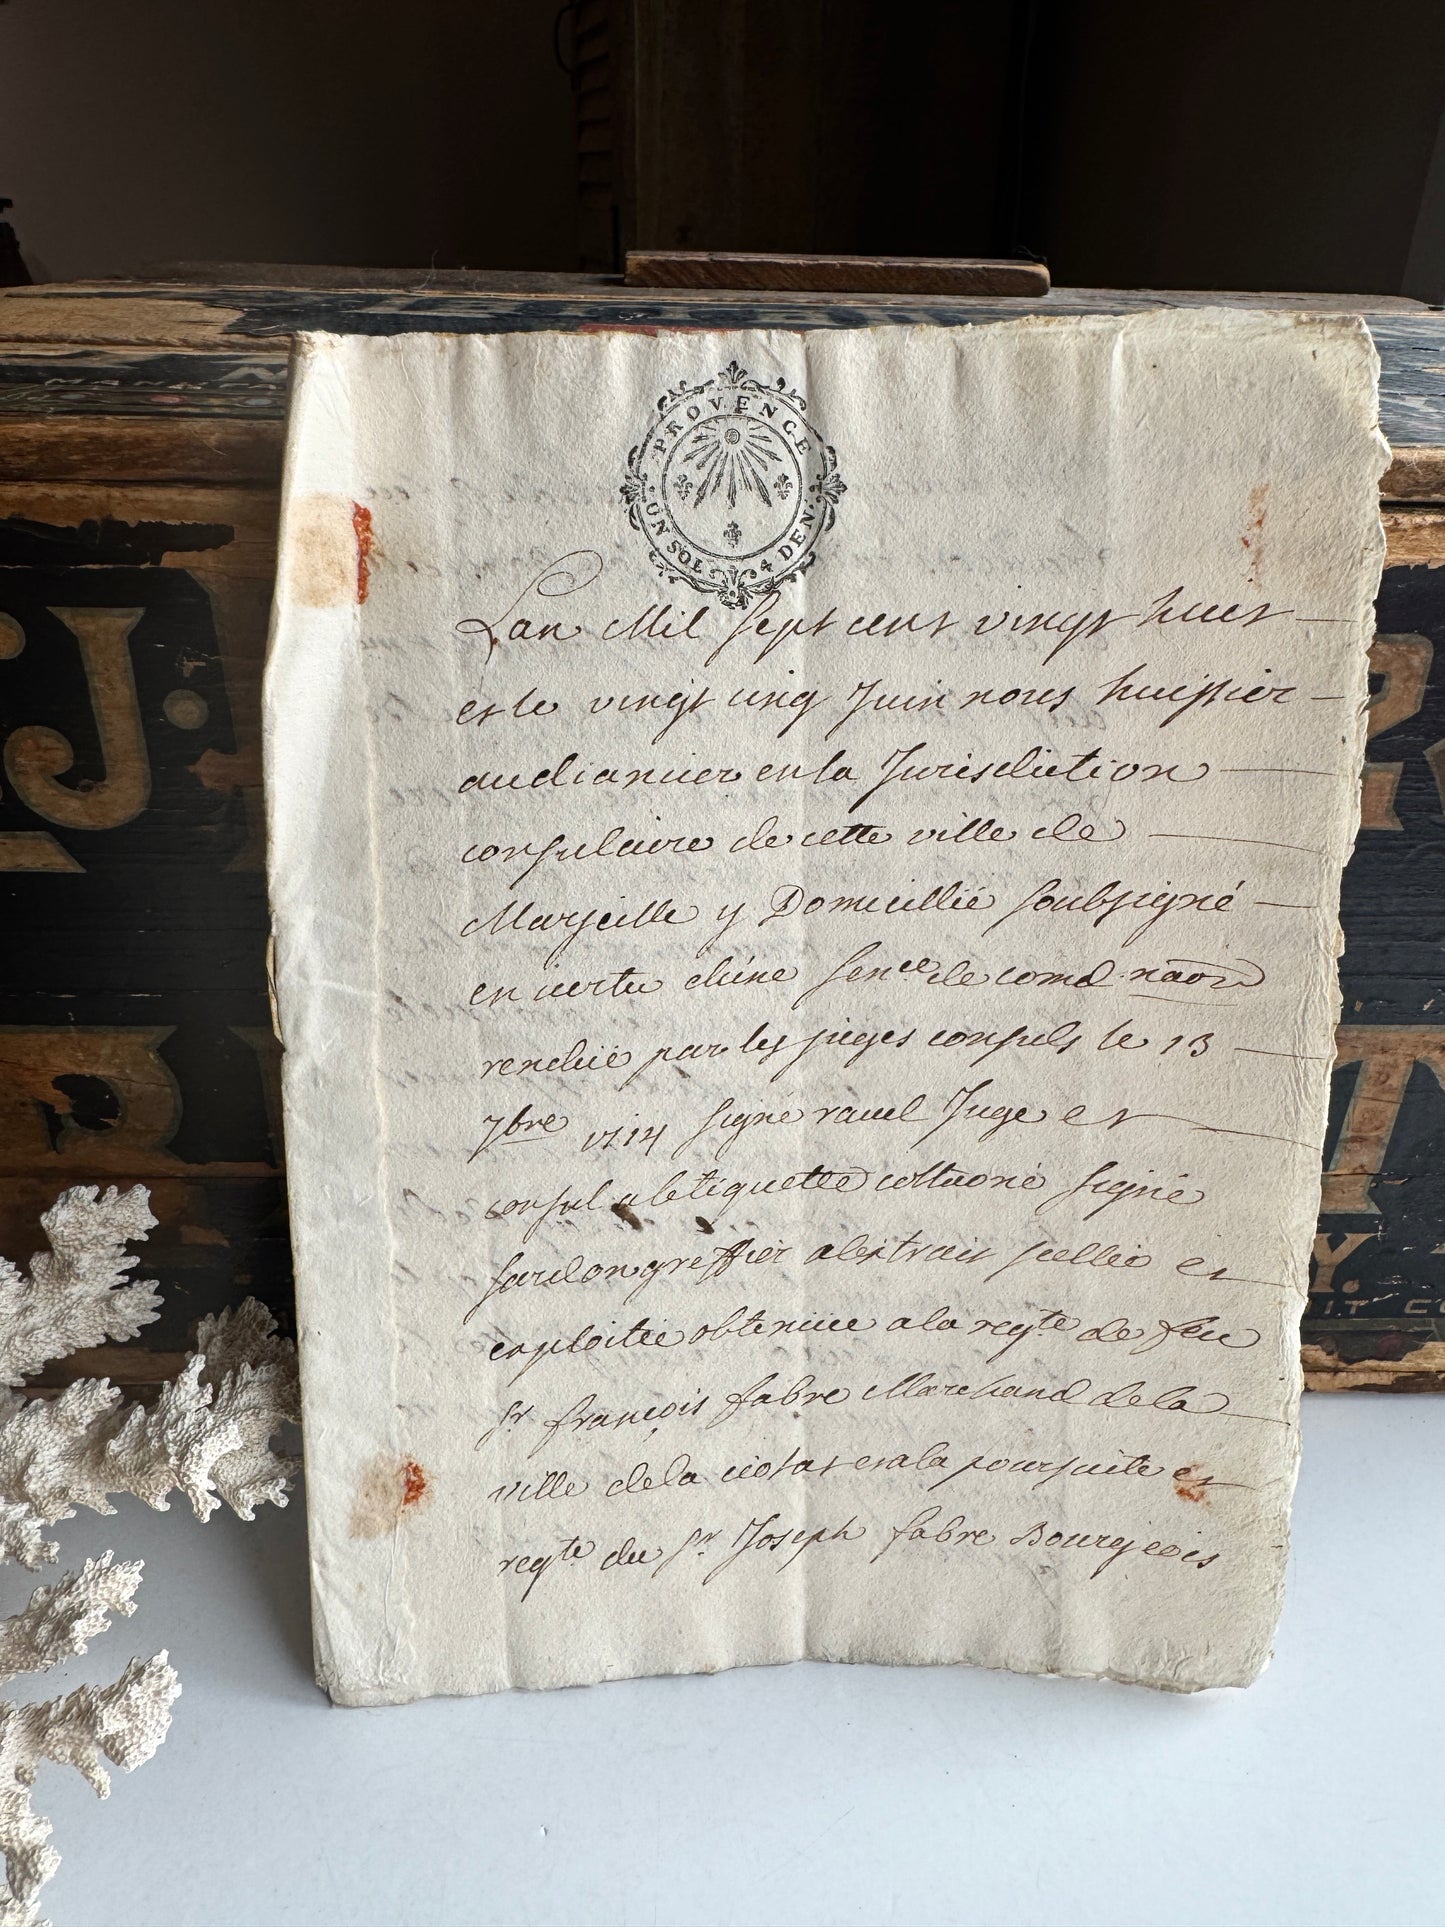 PROVENCE
UN SOL 4 DEN.
Lan Mil sept cent vingt huit
et le vingt cinq Juin nous huissier
audiancier en la Jurisdiction
consulaire de cette ville de
Marseille y Domicillié soubsigné
en vertu dúne sence de comd naon
rendüe par les juges consuls le 13
7bre 1714 signé Juge et
consul a letiquette colltaoné signé
greffier alextrait scellée et
exploitée obtenüe a la reqte de feu
sr françois fabre Marchand de la
ville de la ciotat et a la poursuite et
reqte du sr Joseph fabre Bourgeois
J.
Y.